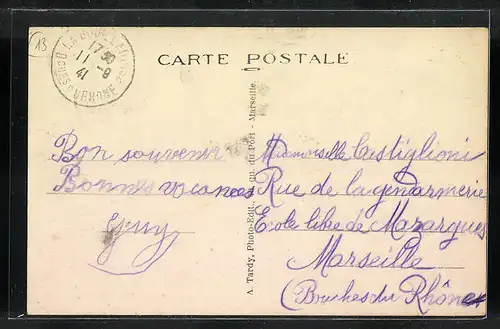 13
17 30
11 -9
41
BOUCHES DU RHONE
CARTE POSTALE
Bon souvenir
Bonnes vacances
Guy
A. Tardy, Photo-Edit., du Port - Marseille
Mademoiselle Castiglioni
Rue de la gendarmerie
Ecole libre de Mazargues
Marseille
(Bouches du Rhône)